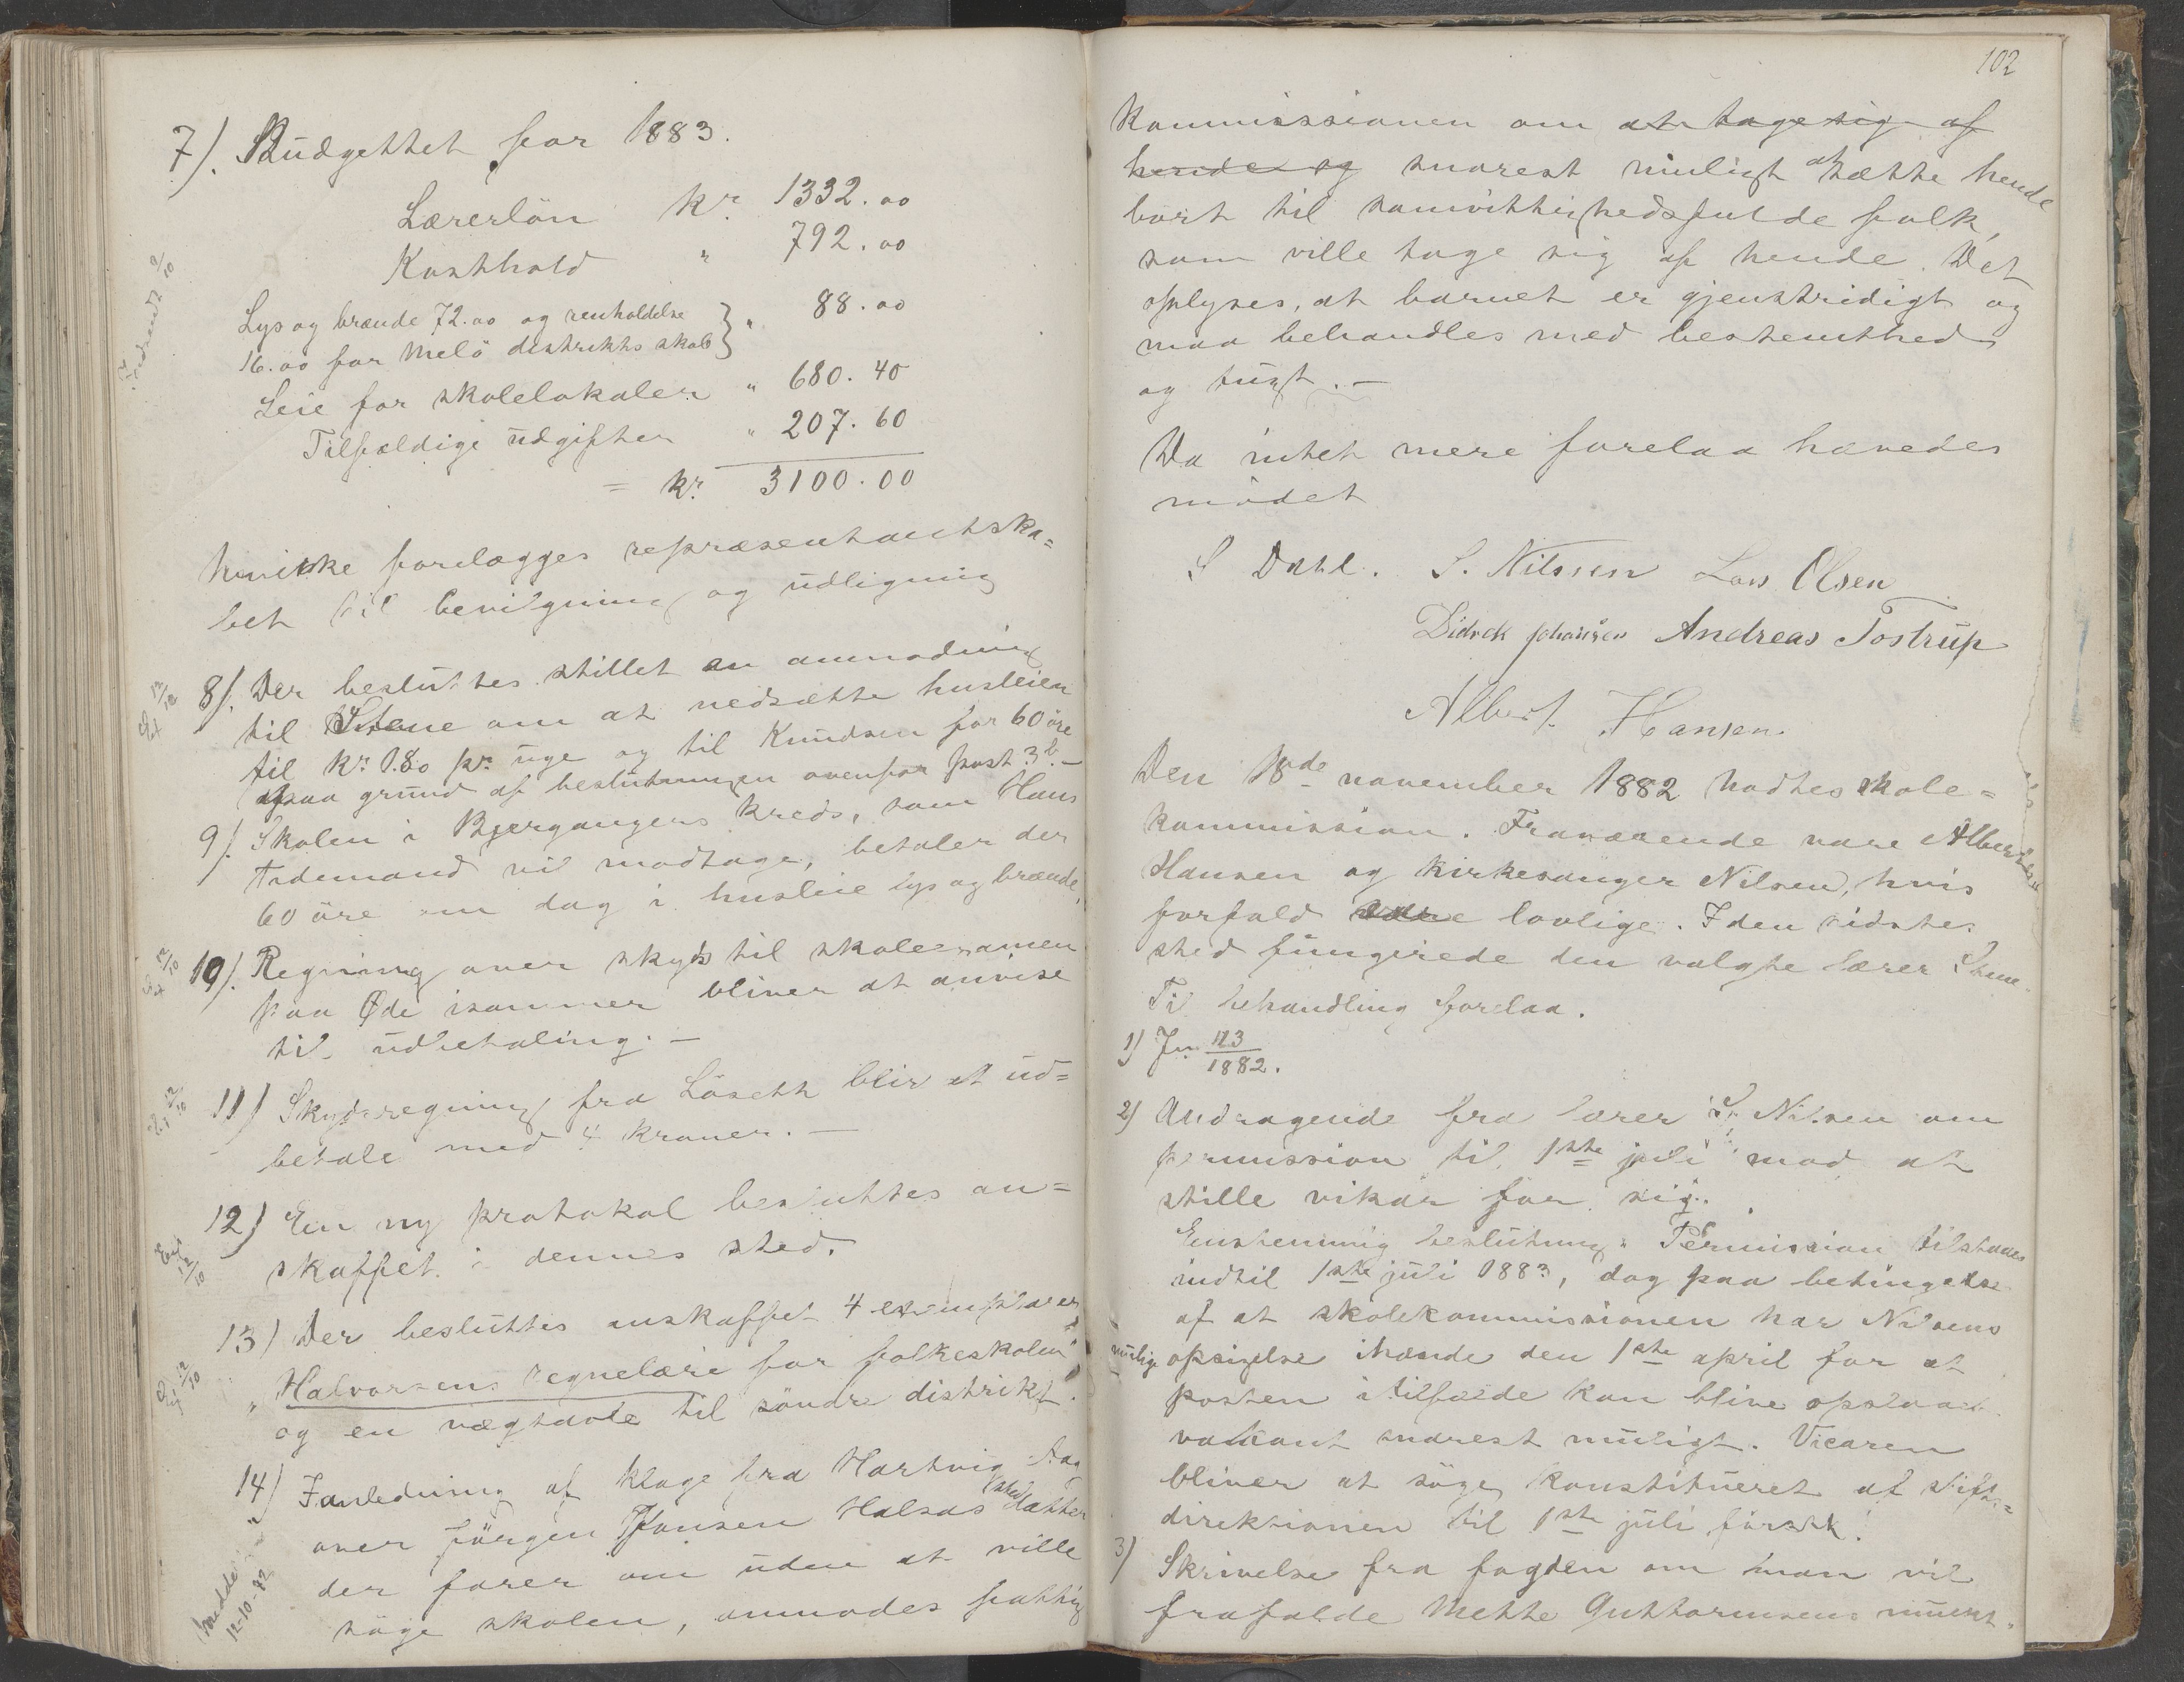 7). Budgettet for 1883.
Lærerlön kr. 1332.00
Kosthold " 792.00
Lys og brænde 72.00 og renholdelse
16.00 for Melö distrikts skole } " 88.00
Leie for skolelokaler " 680.40
Tilfældige udgifter " 207.60
= kr. 3100.00
hvilke forelægges repræsentantska=
bet til bevilgning og udligning
8). Der besluttes stillet en anmodning
til Stene om at nedsætte husleien
til kr. 1.80 pr. uge og til Knudsen for 60 öre
paa grund af beslutningen ovenfor post 3b. —
9). Skolen i Bjergangens kreds, som Hans
Tidemand vil modtage, betaler der
60 öre om dag i husleie lys og brænde,
10). Regning over skyds til skoleexamen
paa Øde isommer bliver at anvise
til udbetaling. —
11) Skydsregning fra Löseth blir at ud=
betale med 4 kroner. —
12) En ny protokol besluttes an=
skaffet i dennes sted.
13) Der besluttes anskaffet 4 exemplarer
"Halvorsens regnelære for folkeskolen"
og en vægtavle til söndre distrikt.
14) I anledning af klage fra Hartvig Aag
over Jörgen Jansen Halsas datter
der farer om uden at ville
söge skolen, anmodes fattig
12-10-82
102
kommissionen om at tage sig af
hende og snarest muligt at sætte hende
bort til samvittighedsfulde folk,
som ville tage sig af hende. Det
oplyses, at barnet er gjenstridigt og
maa behandles med bestemthed
og tugt. —
Da intet mere forelaa hævedes
mödet
S Dahl. S. Nilssen Lars Olsen
Didrek Johansen Andreas Tostrup
Albert Hansen.
Den 18de november 1882 holdtes skole=
kommission. Fraværende vare Albert
Hansen og kirkesanger Nilsen, hvis
forfald vare lovlige. I den sidstes
sted fungerede den valgte lærer Stene.
Til behandling forelaa.
1) Jn. 113/1882.
2) Andragende fra lærer S. Nilsen om
permission til 1ste juli mod at
stille vikar for sig.
Enstemmig beslutning: Permission tilstaaes
indtil 1ste juli 1883, dog paa betingelse
af at skolekommissionen har Nilsens
mulige opsigelse ihænde den 1ste april for at
posten i tilfælde kan blive opslaaet
vakant snarest muligt. Vicaren
bliver at söge konstitueret af stifts=
direktionen til 1ste juli först.
3) Skrivelse fra fogden om man vil
frafalde Mette Guttormsens mulkt.